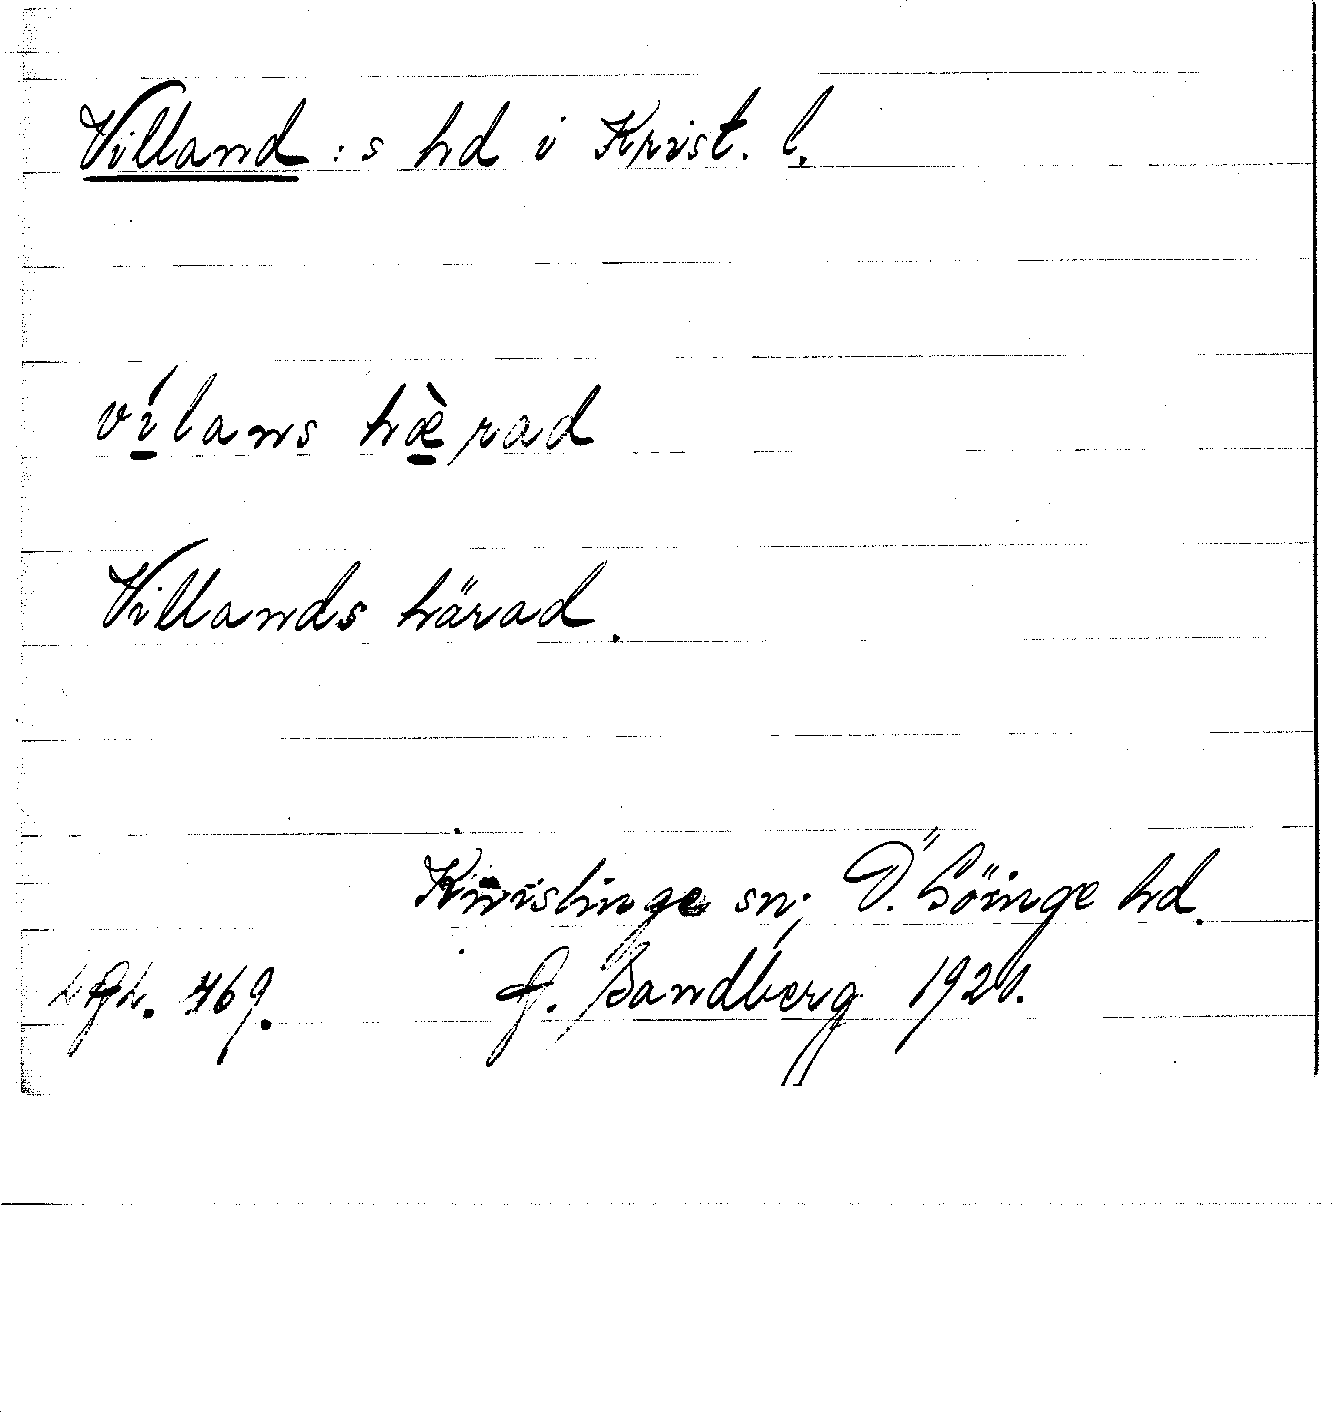 Villand:s hd i Krist. l.
vílans hæ̀rad
Villands härad.
Knislinge sn; Ö. Göinge hd.
769. J. Sandberg 1920.